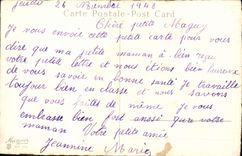 Juillet 26 Novembre 1942
Carte Postale - Post Card
Chère petite Maguy
Je vous envoie cette petite carte pour vous
dire que ma petite maman a bien reçu
votre petite lettre et nous étions bien heureux
de vous savoir en bonne santé je travaille
toujours bien en classe et nous savons
que vous faites de même je vous
embrasse bien fort aussi que votre
maman Votre petite amie
Jeannine Marie